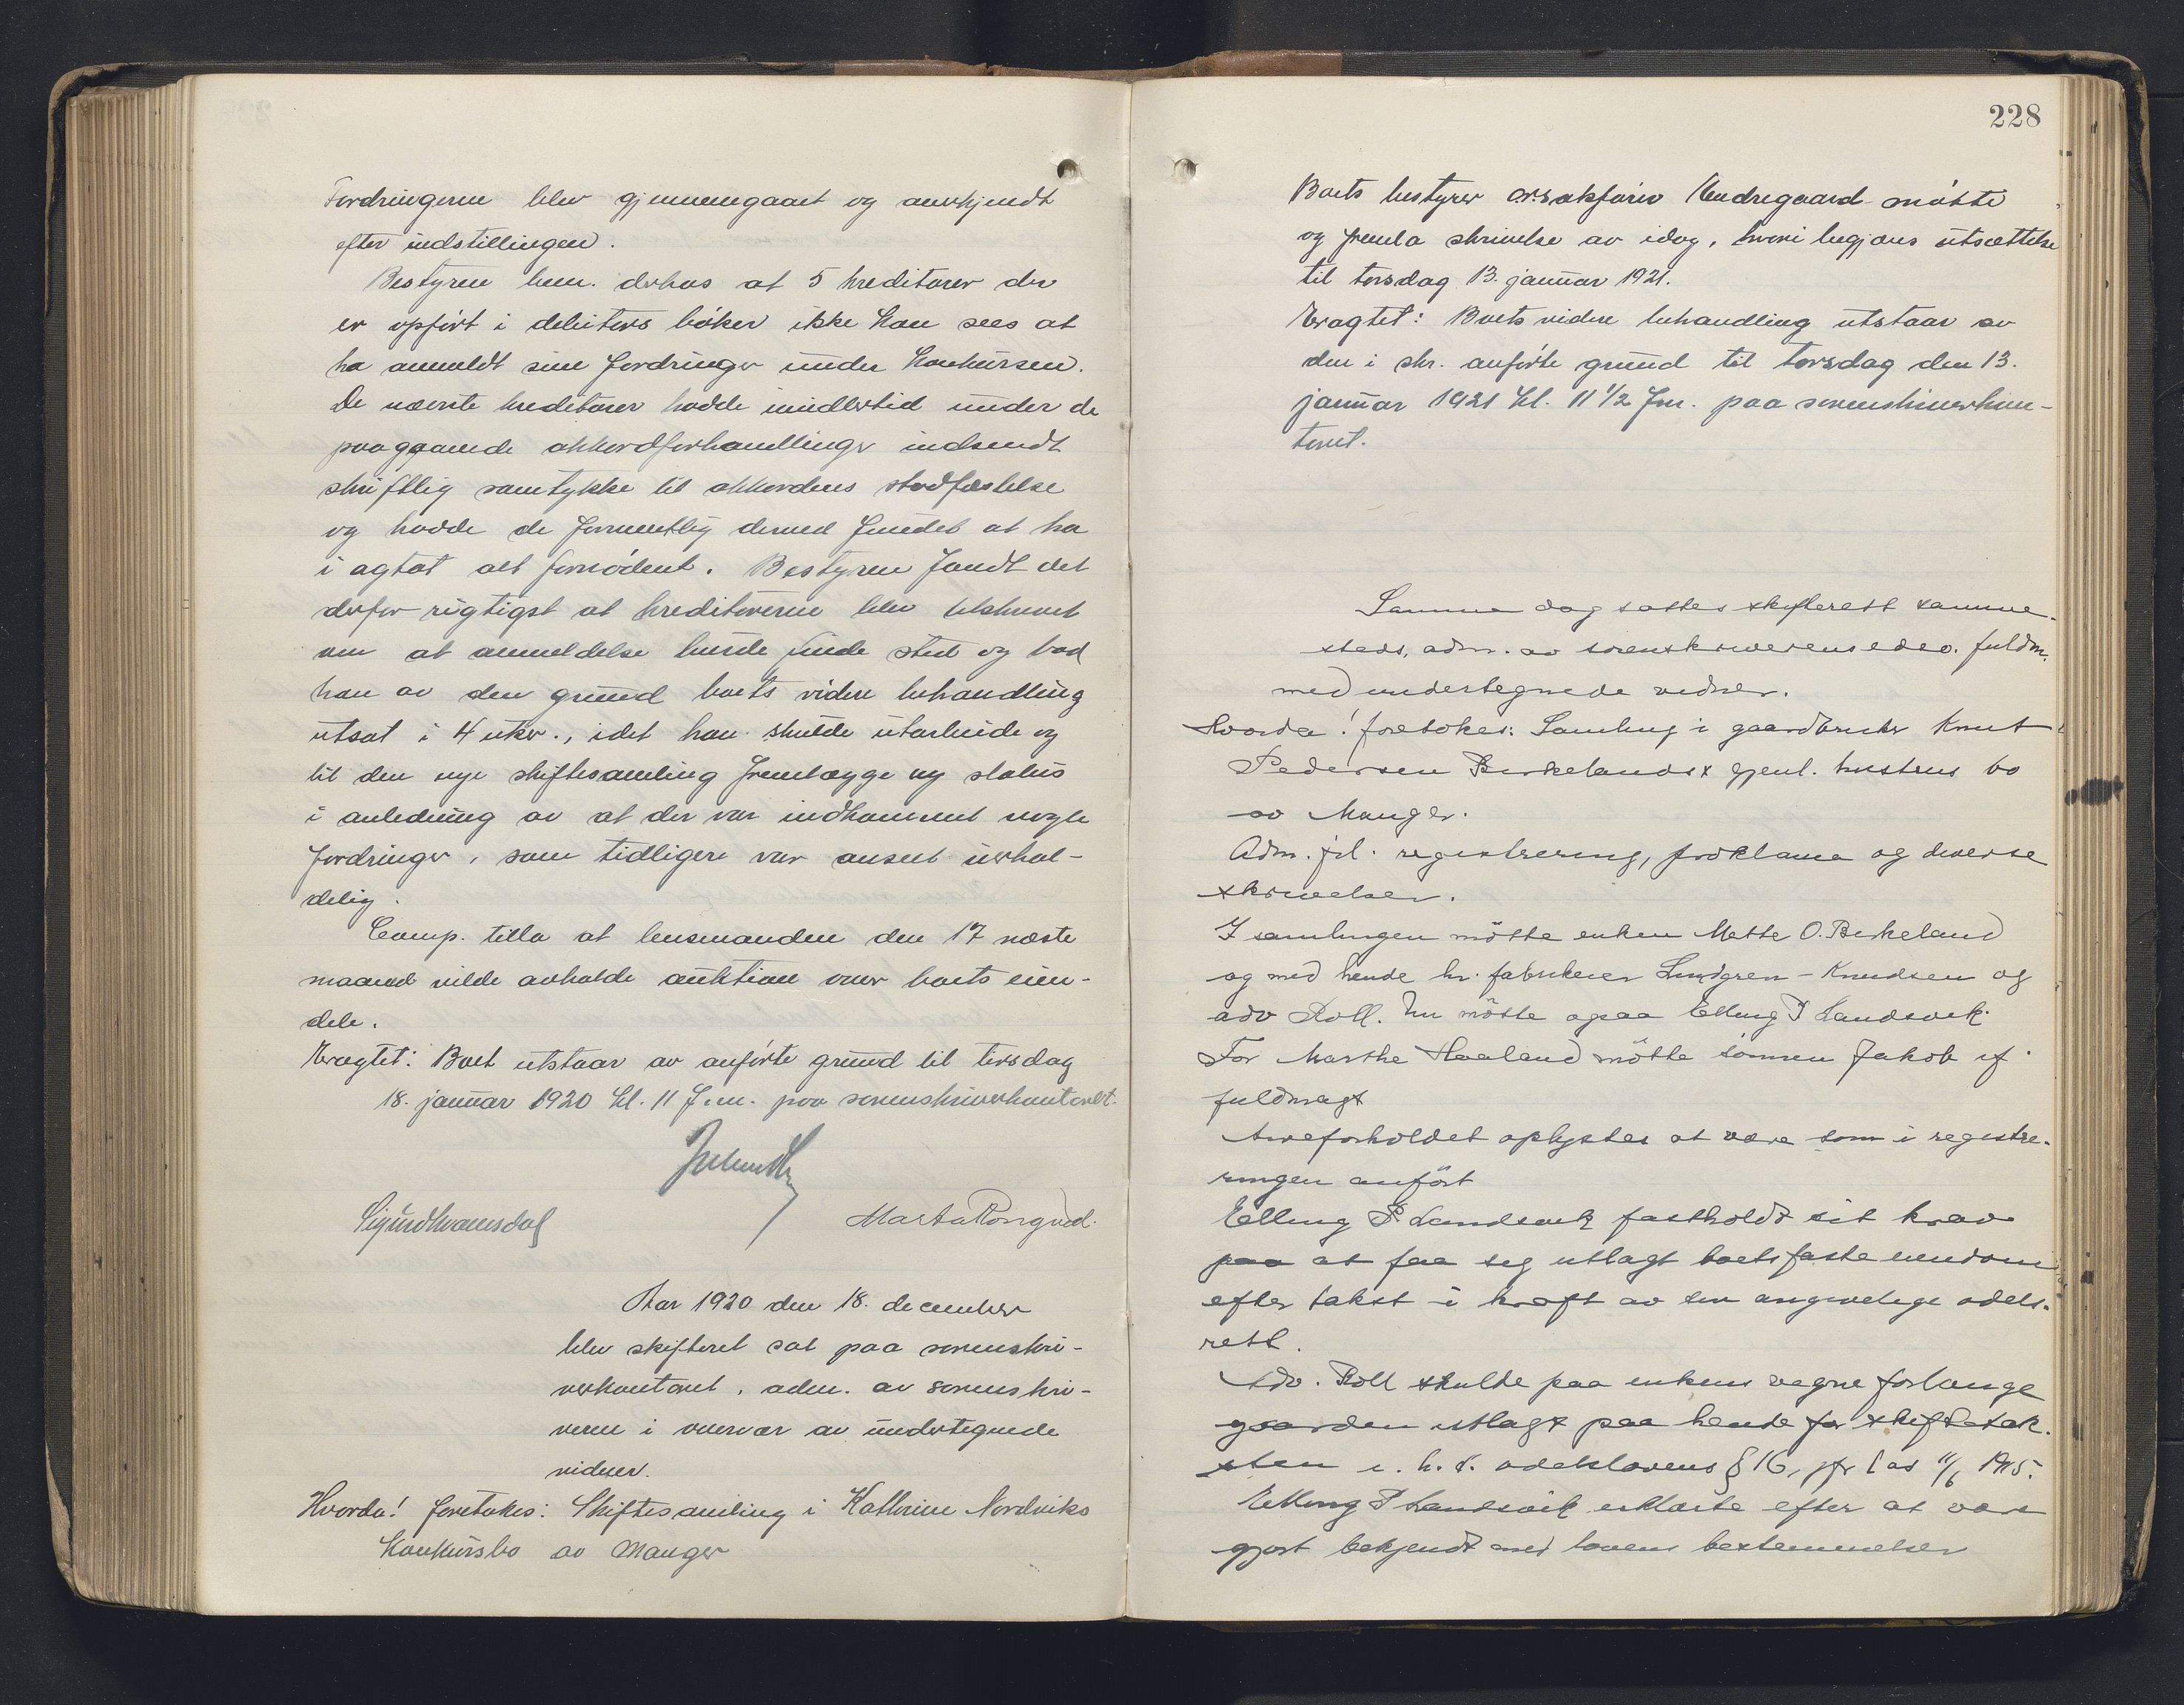 Fordringerne blev gjennemgaaet og anerkjendt
efter indstillingen.
Bestyren bem. derhos at 5 kreditorer der
er opført i debitors bøker ikke kan sees at
ha anmeldt sine fordringer under konkursen.
De nævnte kreditorer hadde imidlertid under de
paagaaende akkordforhandlinger indsendt
skriftlig samtykke til akkordens stadfæstelse
og hadde de formentlig dermed fundet at ha
i agtat alt fornødent. Bestyren fandt det
derfor rigtigst at kreditorerne blev tilskrevet
om at anmeldelse burde finde sted og bad
han av den grund boets videre behandling
utsat i 4 uker., idet han skulde utarbeide og
til den nye skiftesamling fremlægge ny status
i anledning av at der var indkommet nogle
fordringer, som tidligere var anseet uerhol-
delig.
Comp. tilla at lensmanden den 17 næste
maaned vilde avholde auktion over boets eien-
dele.
Eragtet: Boet utstaar av anførte grund til tirsdag
18. januar 1920 kl. 11 f.m. paa sorenskriverkontoret.
Sigurd Kvamsdal Marta Rongved.
Aar 1920 den 18. december
blev skifteret sat paa sorenskri-
verkontoret, adm. av sorenskri-
veren i overvær av undertegnede
vidner.
Hvorda! foretakes: Skiftesamling i Kathrine Nordviks
Konkursbo av Manger
228
Boets bestyrer o.r.sakfører Hendregaard møtte
og fremla skrivelse av idag, hvori begjæres utsættelse
til torsdag 13. januar 1921.
Eragtet: Boets videre behandling utstaar av
den i skr. anførte grund til torsdag den 13.
januar 1921 kl. 11 1/2 fm. paa sorenskriverkon-
toret.
Samme dag sattes skifterett samme-
steds, adm. av sorenskriverens edsv. fuldm.
med undertegnede vidner.
Hvorda! foretokes: Samling i gaardbruker Knut
Pedersen Birkelands x gjenl. hustrus bo
av Manger.
Adm. frl. registrering, proklama og diverse
skrivelser.
I samlingen møtte enken Mette O. Birkeland
og med hende hr. fabrikeier Lindgren-Knudsen og
adv Roll. Nu møtte ogsaa Elling P Landsvik.
For Marthe Haaland møtte sønnen Jakob if.
fuldmagt
Arveforholdet oplystes at være som i registre-
ringen anført
Elling P Landsvik fastholdt sit krav
paa at faa seg utlagt boets faste eiendom
efter takst i kraft av sin angivelige odels-
rett.
Adv. Roll skulde paa enkens vegne forlange
gaarden utlagt paa hende for skiftetak-
sten i. h. t. odelslovens § 16, jfr l av 11/6 1915.
Elling P Landsvik erklærte efter at være
gjort bekjendt med lovens bestemmelser